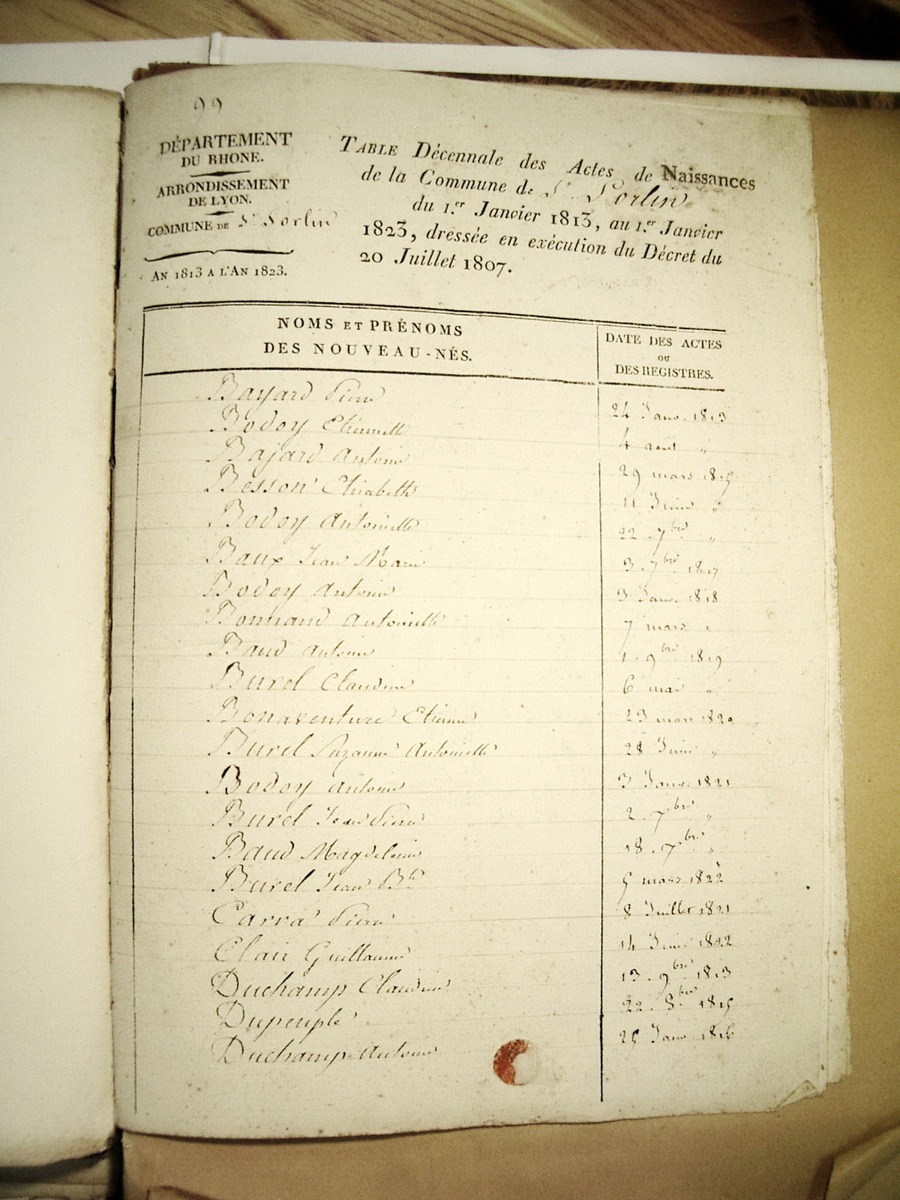 99
DÉPARTEMENT
DU RHONE.
ARRONDISSEMENT
DE LYON.
COMMUNE DE St Sorlin
AN 1813 A L'AN 1823.
TABLE Décennale des Actes de Naissances
de la Commune de St Sorlin
du 1.er Janvier 1813, au 1.er Janvier
1823, dressée en exécution du Décret du
20 Juillet 1807.
NOMS ET PRÉNOMS
DES NOUVEAU-NÉS.
DATE DES ACTES
OU
DES REGISTRES.
Bayard Pierre 24 Janv. 1813
Bodoy Etiennette 4 aout "
Bajard Antoine 29 mars 1815
Besson Elisabeth 11 Juin "
Bodoy Antoinette 22 7bre "
Baux Jean Marie 3 7bre 1817
Bodoy Antoine 3 Janv. 1818
Bonnand Antoinette 7 mars "
Baud Antoine 1 9bre 1819
Burel Claudine 6 mai "
Bonaventure Etienne 23 mars 1820
Burel Suzanne Antoinette 28 Juin "
Bodoy Antoine 3 Janv. 1821
Burel Jean Pierre 2 7bre "
Baud Magdelaine 18 7bre "
Burel Jean Bte 5 mars 1822
Carra Pierre 8 Juillet 1821
Clair Guillaume 14 Juin 1822
Duchamp Claudine 13 9bre 1813
Dupeuple 22 8bre 1815
Duchamp Antoine 25 Janv 1816